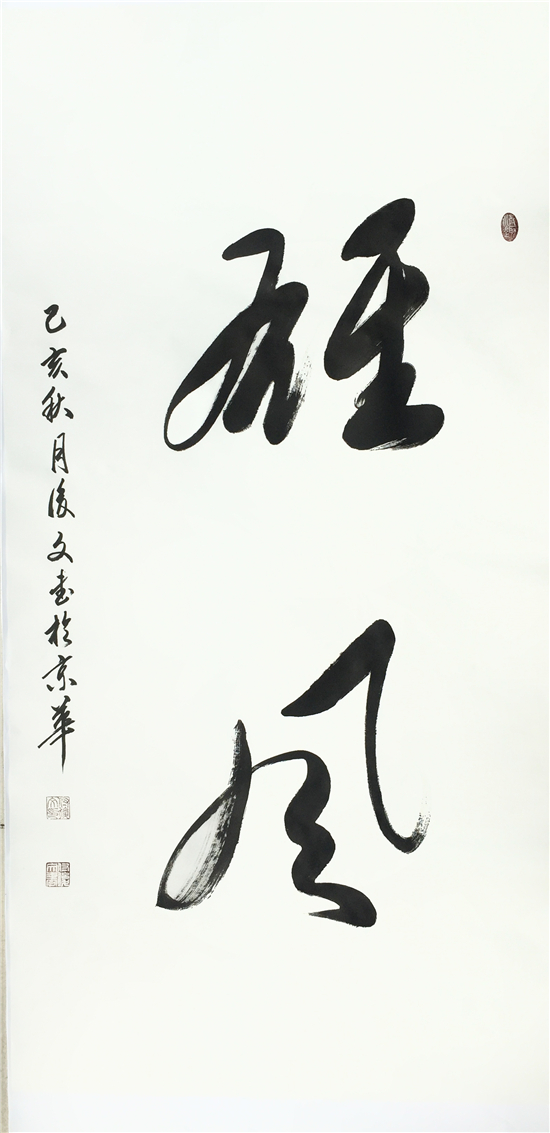 雄风
己亥秋月俊文書於京華